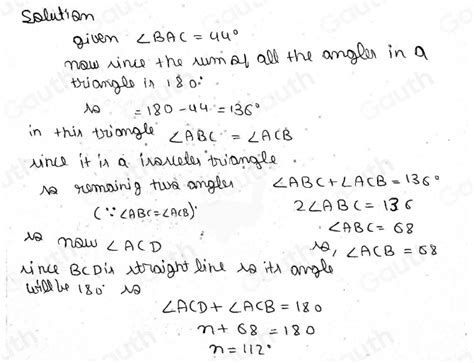 Solution
given ∠BAC = 44°
now since the sum of all the angles in a
triangle is 180°
so = 180 - 44 = 136°
in this triangle ∠ABC = ∠ACB
since it is a isosceles triangle
so remaining two angles ∠ABC + ∠ACB = 136°
(∵ ∠ABC = ∠ACB) 2∠ABC = 136
∠ABC = 68
so now ∠ACD so, ∠ACB = 68
since BCD is straight line so its angle
will be 180 so
∠ACD + ∠ACB = 180
n + 68 = 180
n = 112°
Gauth